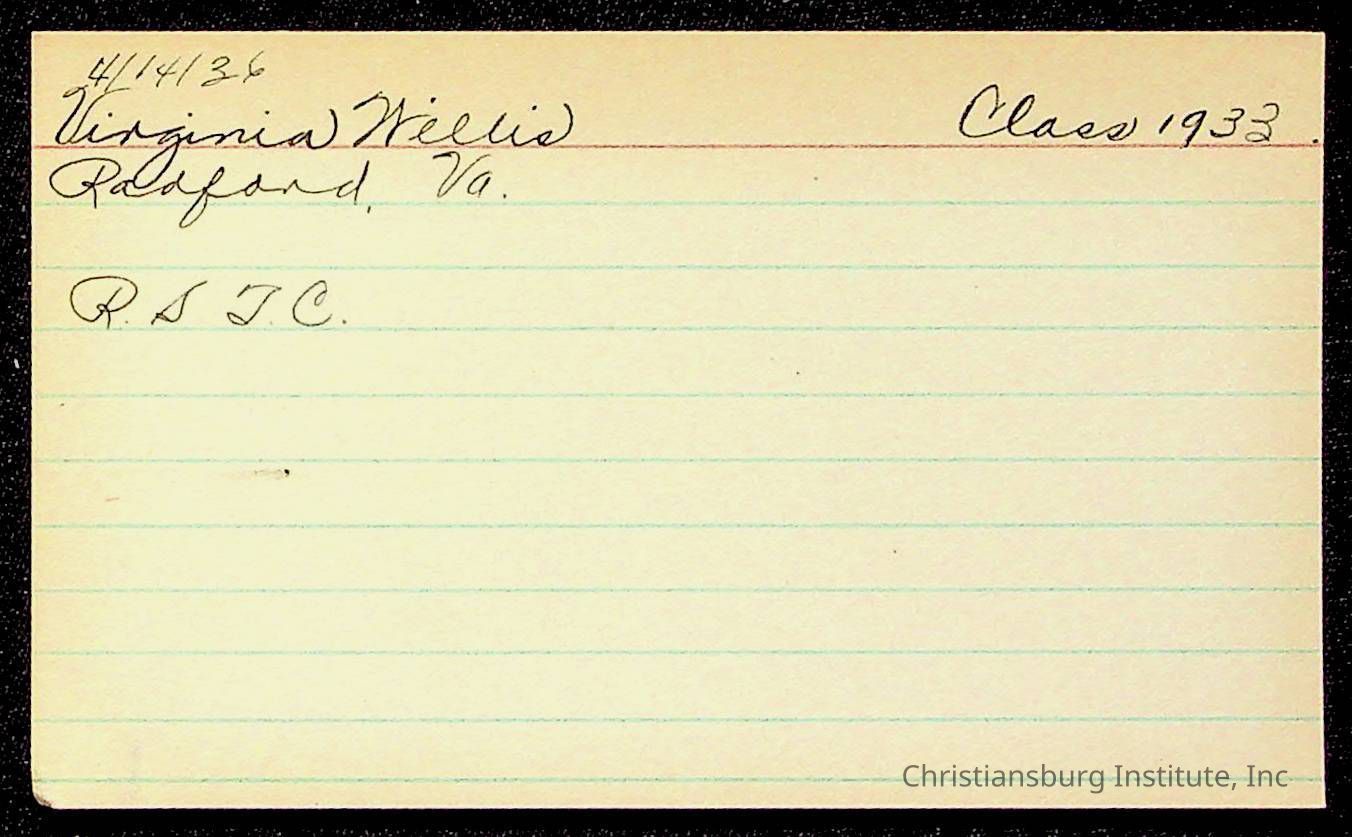 4/14/36
Virginia Willis Class 1933.
Radford, Va.
R. S T. C.
Christiansburg Institute, Inc